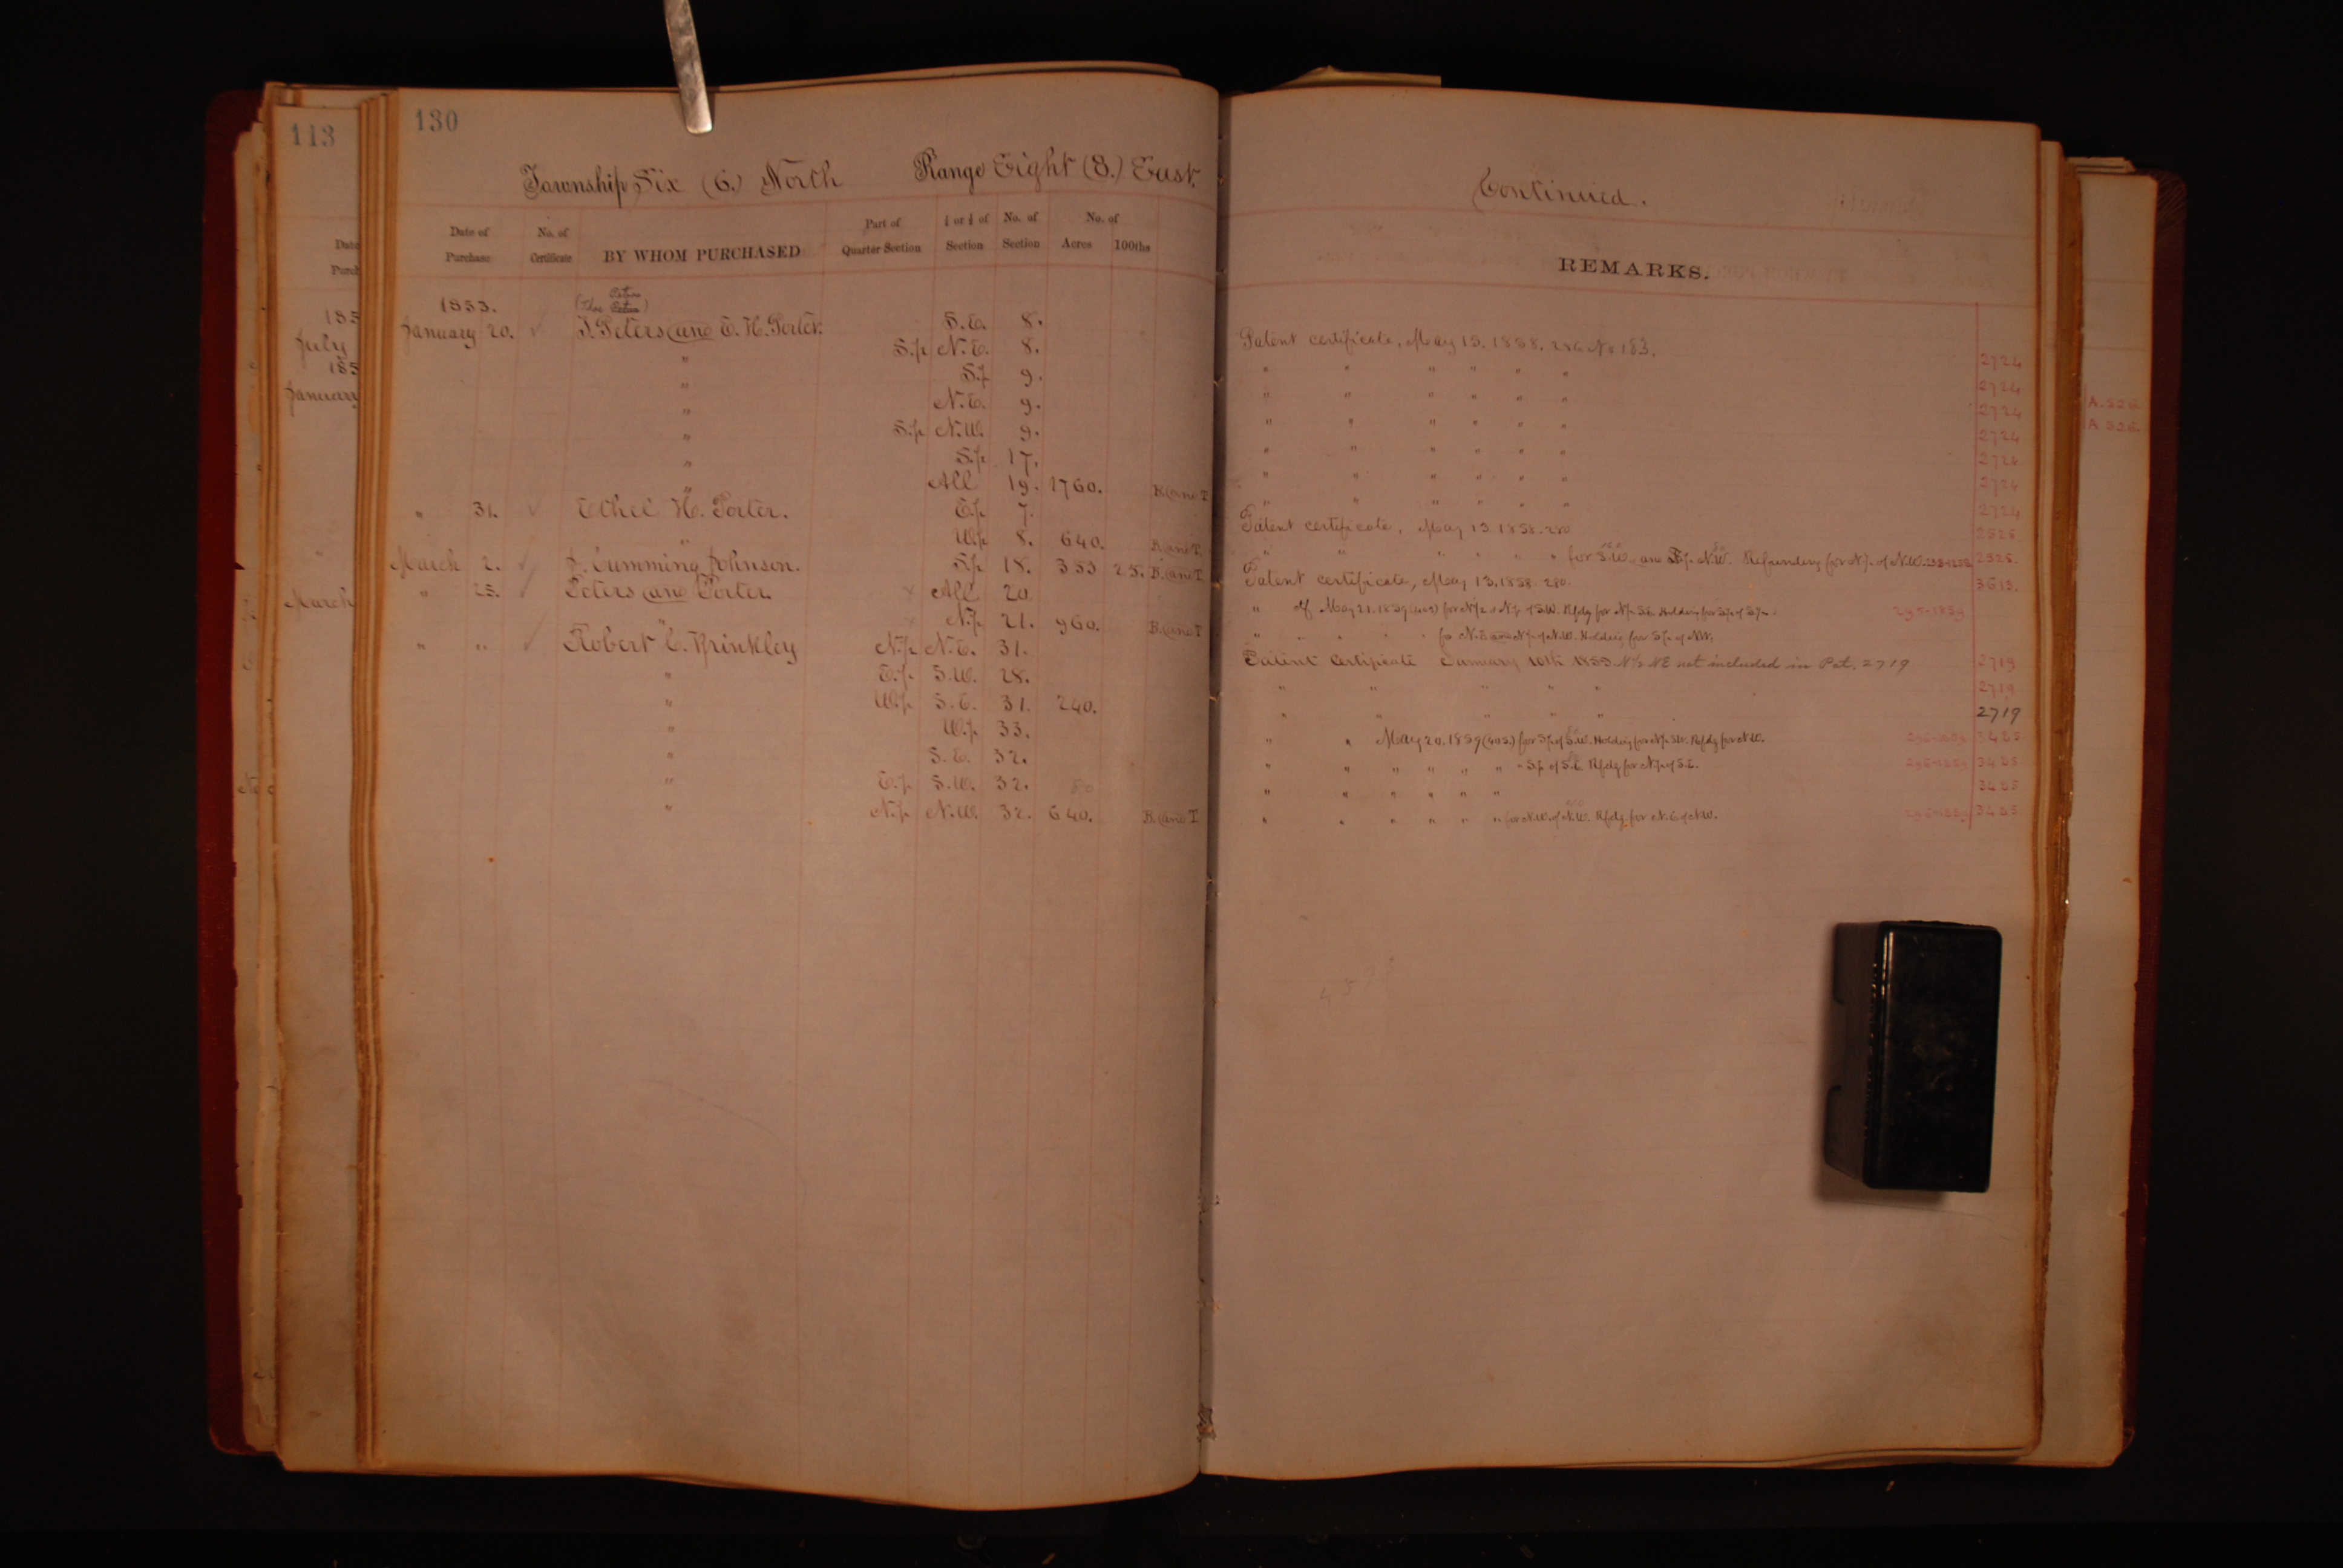 113
130
Township Six (6.) North Range Eight (8.) East.
Continued.
Date of Purchase No. of Certificate BY WHOM PURCHASED Part of Quarter Section ½ or ¼ of Section No. of Section No. of Acres 100ths
REMARKS.
1853.
January 20. T. Peters and E. H. Porter. S.E. 8.
" S.½ N.E. 8.
" S.½ 9.
" N.E. 9.
" S.½ N.W. 9.
" S.½ 17.
" All 19. 1760. B. and T.
" 31. Ethel H. Porter. E.½ 7.
" W.½ 8. 640. B. and T.
March 2. J. Cumming Johnson. S.½ 18. 353 25. B. and T.
" 25. Peters and Porter. All 20.
" N.½ 21. 960. B. and T.
" " Robert C. Brinkley N.½ N.E. 31.
" E.½ S.W. 28.
" W.½ S.E. 31. 240.
" W.½ 33.
" S.E. 32.
" E.½ S.W. 32. 80
" N.½ N.W. 32. 640. B. and T.
Patent certificate, May 13. 1858. 286 No 183. 2724
" " " " " " 2724
" " " " " " 2724
" " " " " " 2724
" " " " " " 2724
" " " " " " 2724
" " " " " " 2724
Patent certificate, May 13. 1858. 280 2525.
" " " " " " for S.W. and S.½ N.W. Refunding for N.½ of N.W. 2525.
Patent certificate, May 13, 1858. 280. 3613.
" of May 21. 1859 for N½ & N.½ of S.W. Rfdg for N.½ S.E. Holding for S.½ of S.½. 295-1859
" " " " " for N.E. and N.½ of N.W. Holding for S.½ of NW,
Patent Certificate January 10th 1859. N½ NE not included in Pat. 2719 2719
" " " " " 2719
" " " " " 2719
" " May 20. 1859 (402.) for S.½ of S.W. Holding for N.½ S.W. Rfdg for N.W. 296-1859 3425
" " " " " " " S.½ of S.E. Rfdg for N.½ of S.E. 296-1859 3425
" " " " " " 3425
" " " " " " for N.W. of N.W. Rfdg for N.E. of N.W. 296-1859 3425
A. 326.
A 326.